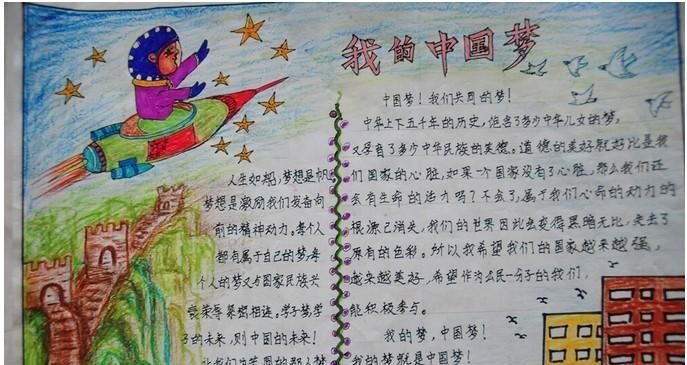 我的中国梦
中国梦！我们共同的梦！
中华上下五千年的历史，包含了多少中华儿女的梦，
又孕育了多少中华民族的美德。道德的美好就好比是我
们国家的心脏，如果一个国家没有了心脏，那么我们还
会有生命的活力吗？不会了，属于我们心的动力的
根源已消失，我们的世界因此会变得黑暗无比，失去了
原有的色彩。所以我希望我们的国家越来越强，
越来越美好，希望作为公民一分子的我们，
能积极参与。
我的梦，中国梦！
我的梦就是中国梦！
人生如船，梦想是帆
梦想是激励我们发奋向
前的精神动力。每个人
都有属于自己的梦，每
个人的梦又与国家民族兴
衰荣辱紧密相连。学子
的未来，则中国的未来！
让我们为祖国的